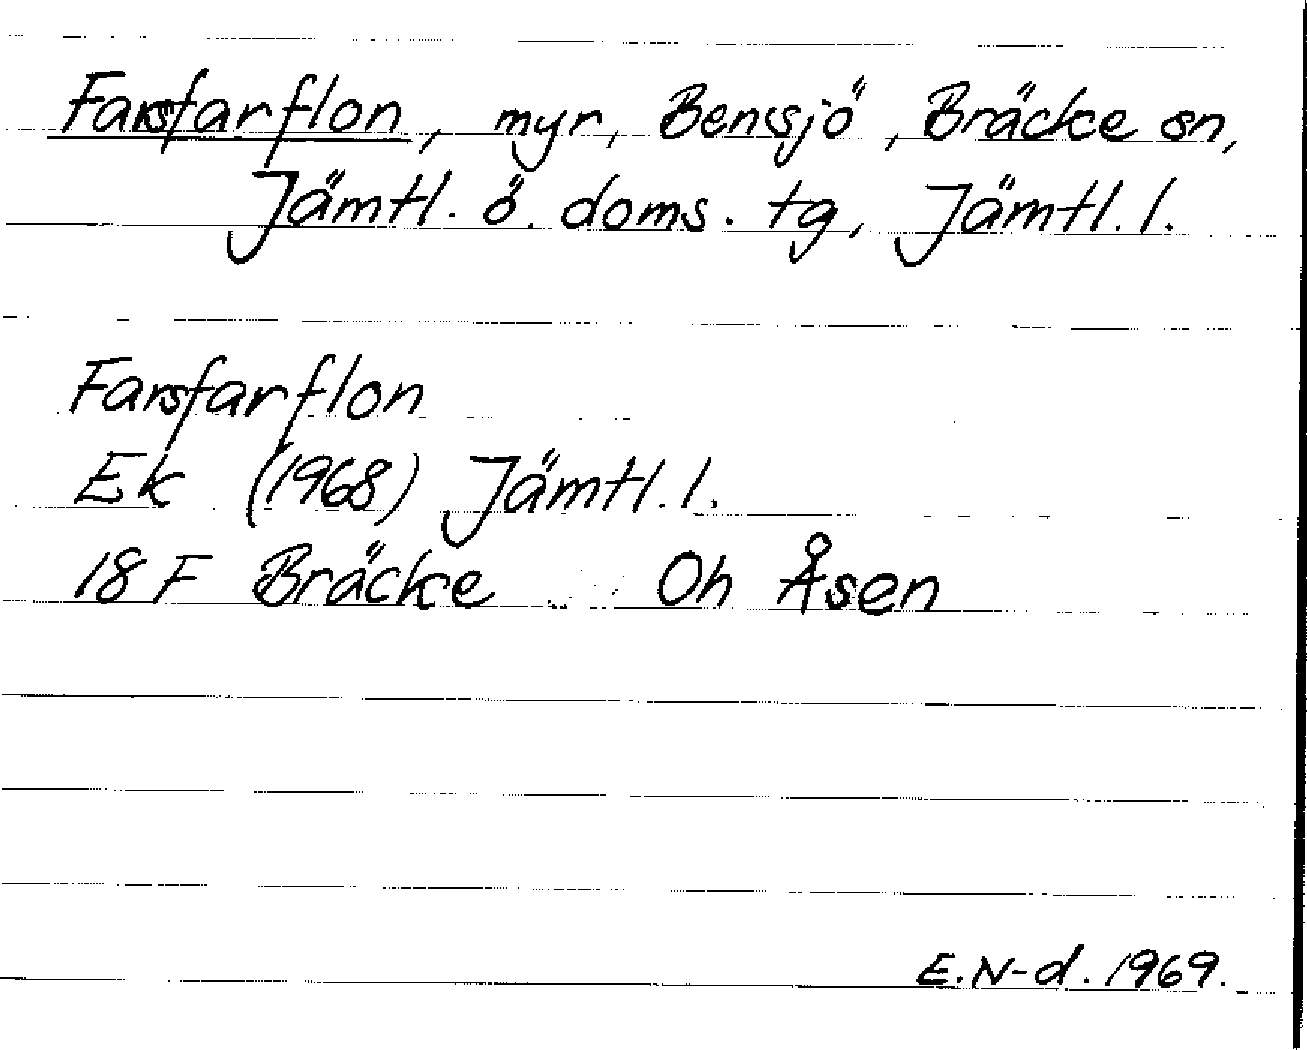 Farsfarflon, myr, Bensjö, Bräcke sn,
Jämtl. ö. doms. tg, Jämtl. l.
Farsfarflon
Ek (1968) Jämtl. l.
18 F Bräcke Oh Åsen
E.N-d. 1969.